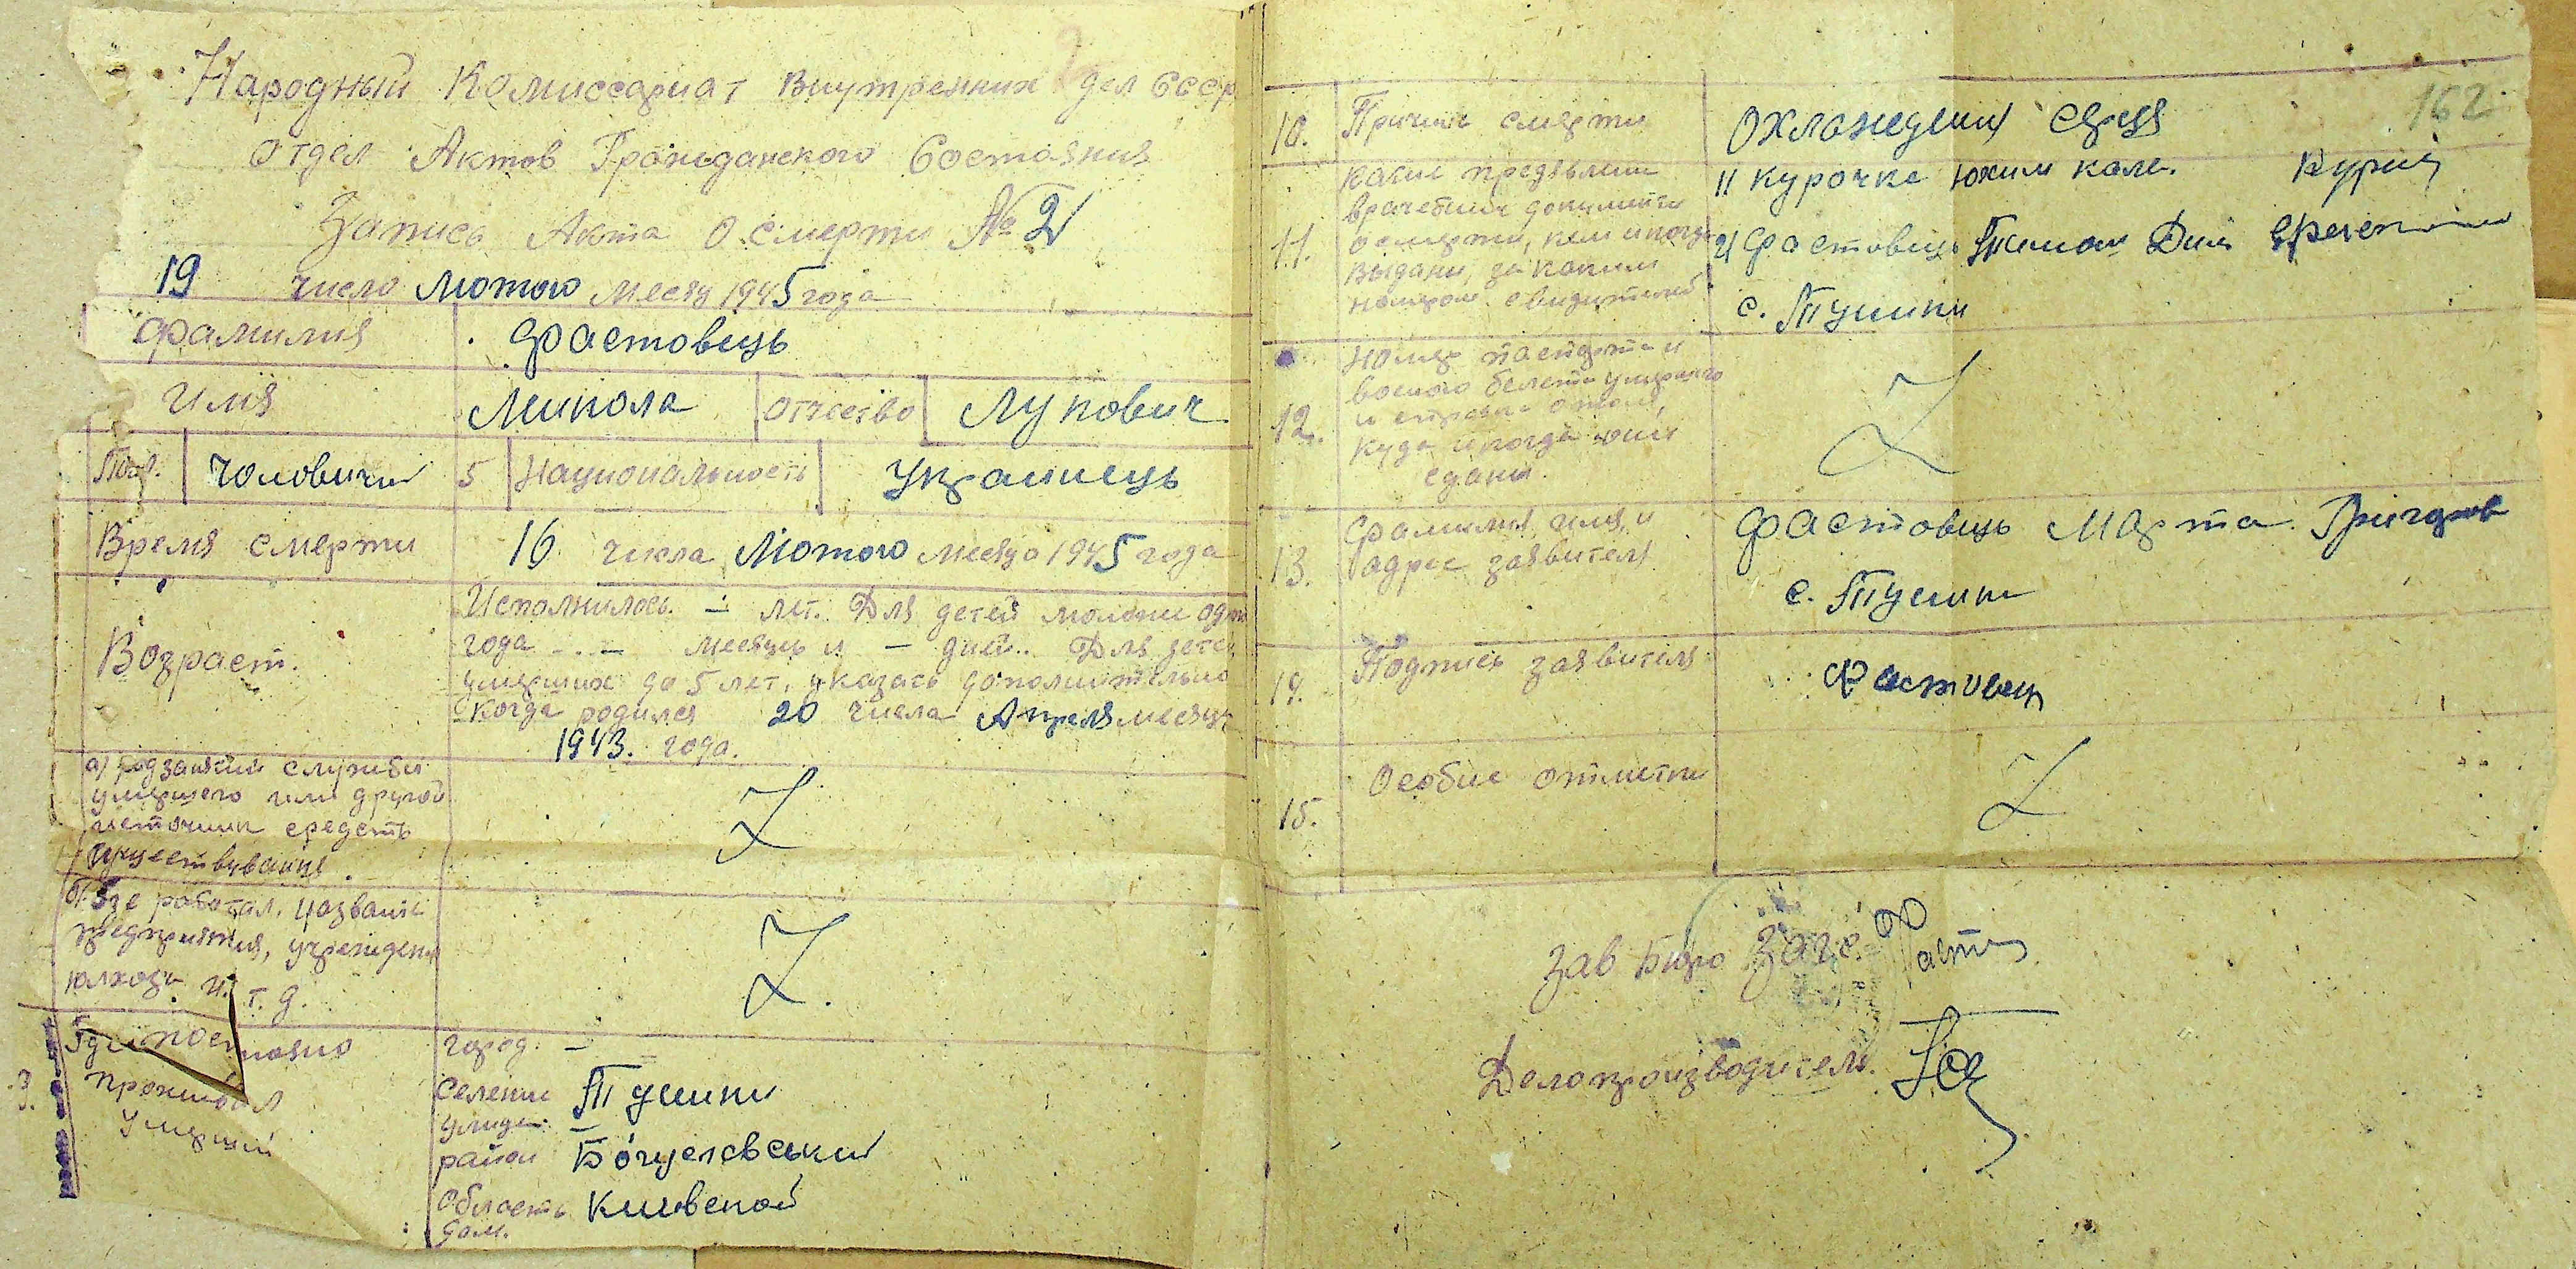 Народный Комиссариат Внутренних дел СССР
Отдел Актов Гражданского Состояния
Запись Акта о смерти № 2
19 число Лютого месяц 1945 года
Фамилия Фастовець
Имя Микола Отчество Лукович
Пол. Чоловичи 5 Национальность Українець
Время смерти 16 числа Лютого месяца 1945 года
Возраст.
Исполнилось — лет. Для детей моложе одн
года — месяць и — дней. Для детей
умерших до 5 лет, указать дополнительно
когда родился 20 числа Апреля месяць
1943. года.
а) род занятий служби
умершего или другой
источник средств
существування.
б) Где работал, название
предприятия, учрежден
колхоза и т. д.
Где постоянно
проживал
умерший
3.
город. —
Селение Тушики
улица —
район Богуславський
Область Киивской
дом.
162
10. Причина смерти Охлаждения серця
11. Какие предявлени
врачебние документи
о смерти, кем и когда
видани, за каким
номером свидетелей
1) Курочка Юхим кале.
2) Фастовець
с. Тушики
12. Номер паспорта и
воєного билета умершего
куда и когда они
сдани.
13. Фамилия, имя, и
адрес заявителя
Фастовець Марта Григоров
с. Тушики
14. Подпись заявителя Фастовец
15. Особие отметки
Зав Бюро Загс. Фаст
Делопроизводитель.